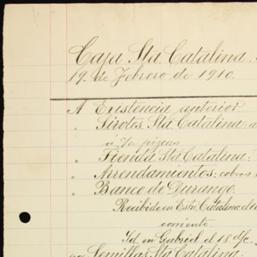 Caja Sta. Catalina.
19. de Febrero de 1910.
A Existencia anterior
" Sirotes Sta Catalina
Tienda Sta Catalina.
" Arrendamientos: cobros
" Banco de Durango
Recibido en Esta. Catalina el
corriente
Id. en Gabriel el 18 de
Semillas Sta. Catalina